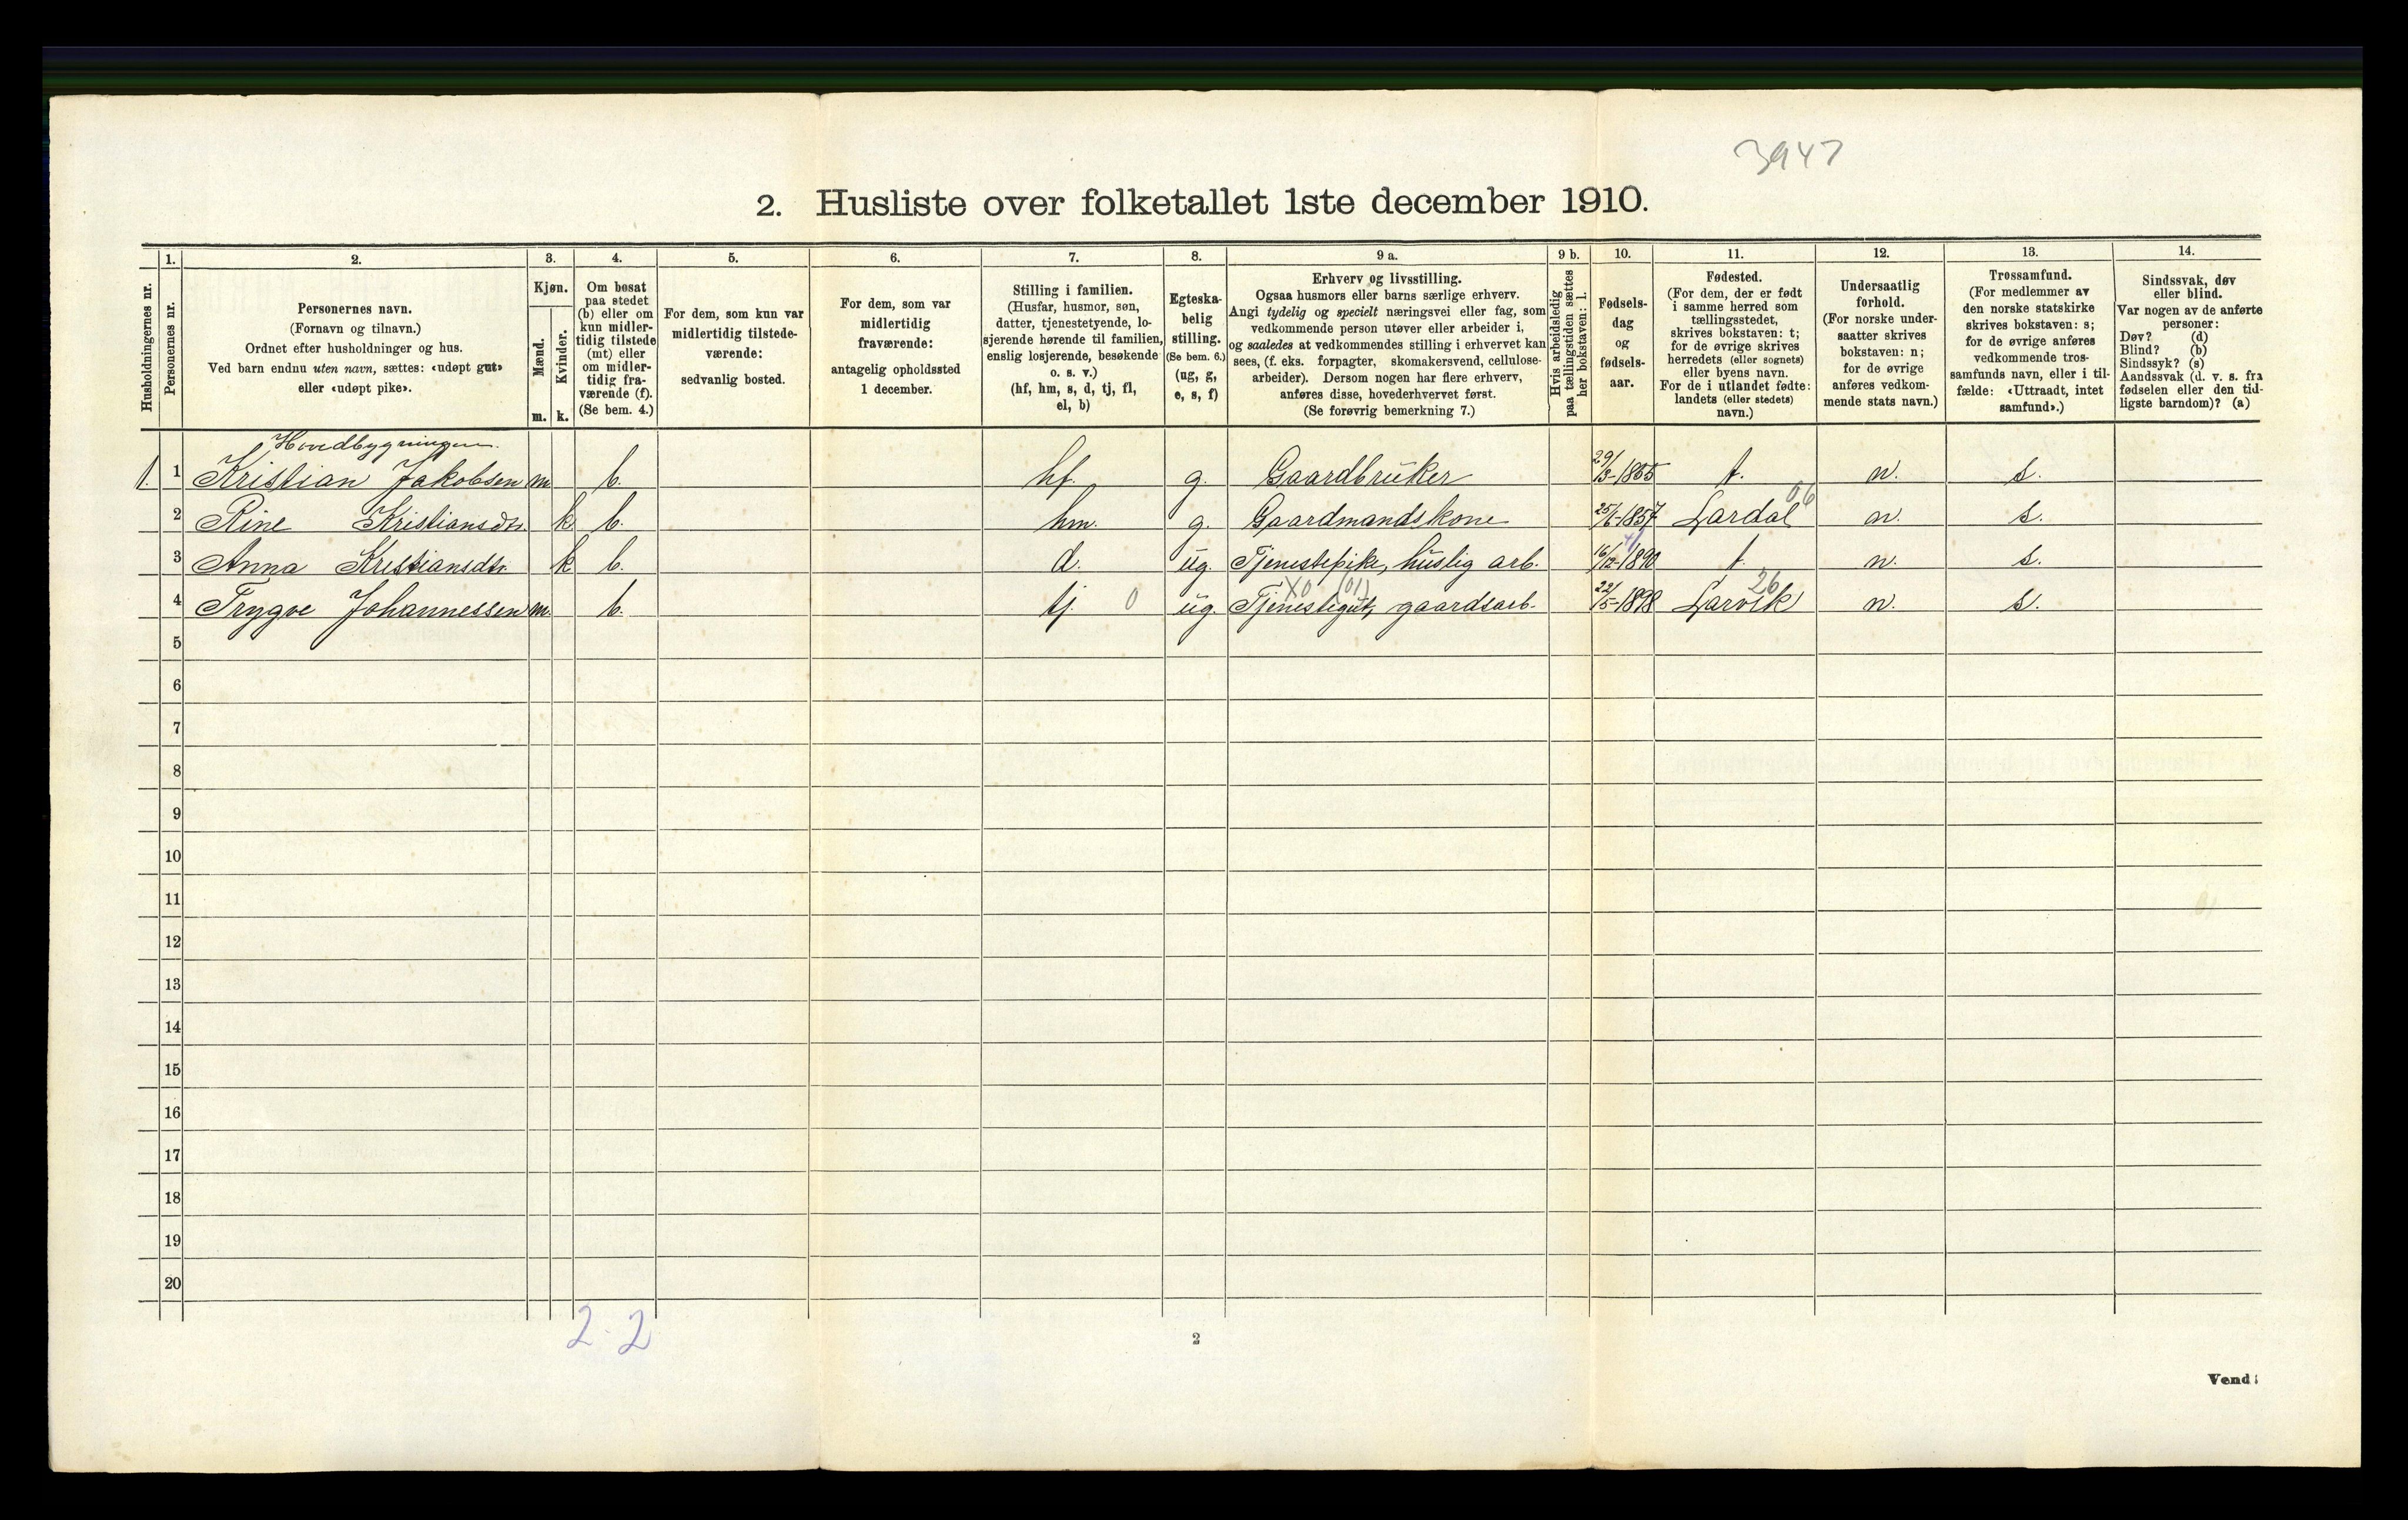 3947
2. Husliste over folketallet 1ste december 1910.
Husholdningernes nr.
1.
Personernes nr.
2.
Personernes navn.
(Fornavn og tilnavn.)
Ordnet efter husholdninger og hus.
Ved barn endnu uten navn, sættes: «udøpt gut»
eller «udøpt pike».
3.
Kjøn.
Mænd.
Kvinder.
m. k.
4.
Om bosat
paa stedet
(b) eller om
kun midler-
tidig tilstede
(mt) eller
om midler-
tidig fra-
værende (f).
(Se bem. 4.)
5.
For dem, som kun var
midlertidig tilstede-
værende:
sedvanlig bosted.
6.
For dem, som var
midlertidig
fraværende:
antagelig opholdssted
1 december.
7.
Stilling i familien.
(Husfar, husmor, søn,
datter, tjenestetyende, lo-
sjerende hørende til familien,
enslig losjerende, besøkende
o. s. v.)
(hf, hm, s, d, tj, fl,
el, b)
8.
Egteska-
belig
stilling.
(Se bem. 6.)
(ug, g,
e, s, f)
9 a.
Erhverv og livsstilling.
Ogsaa husmors eller barns særlige erhverv.
Angi tydelig og specielt næringsvei eller fag, som
vedkommende person utøver eller arbeider i,
og saaledes at vedkommendes stilling i erhvervet kan
sees, (f. eks. forpagter, skomakersvend, cellulose-
arbeider). Dersom nogen har flere erhverv,
anføres disse, hovederhvervet først.
(Se forøvrig bemerkning 7.)
9 b.
Hvis arbeidsledig
paa tællingstiden sættes
her bokstaven: l.
10.
Fødsels-
dag
og
fødsels-
aar.
11.
Fødested.
(For dem, der er født
i samme herred som
tællingsstedet,
skrives bokstaven: t;
for de øvrige skrives
herredets (eller sognets)
eller byens navn.
For de i utlandet fødte:
landets (eller stedets)
navn.)
12.
Undersaatlig
forhold.
(For norske under-
saatter skrives
bokstaven: n;
for de øvrige
anføres vedkom-
mende stats navn.)
13.
Trossamfund.
(For medlemmer av
den norske statskirke
skrives bokstaven: s;
for de øvrige anføres
vedkommende tros-
samfunds navn, eller i til-
fælde: «Uttraadt, intet
samfund».)
14.
Sindssvak, døv
eller blind.
Var nogen av de anførte
personer:
Døv? (d)
Blind? (b)
Sindssyk? (s)
Aandssvak (d. v. s. fra
fødselen eller den tid-
ligste barndom)? (a)
Hovedbygningen.
1. 1 Kristian Jakobsen m b. hf. g. Gaardbruker 29/3-1855 t. n. s.
06
2 Rine Kristiansdtr. k b. hm. g. Gaardmandskone 25/6-1857 Lardal n. s.
3 Anna Kristiansdtr. k b. d. ug. Tjenestepike, huslig arb. 16/12-1890 t. n. s.
X0 (01) 26
4 Trygve Johannessen m. b. tj. 0 ug. Tjenestegut, gaardsarb. 22/5-1898 Larvik n. s.
5
6
7
8
9
10
11
12
13
14
15
16
17
18
19
20
2 - 2
2
Vend!